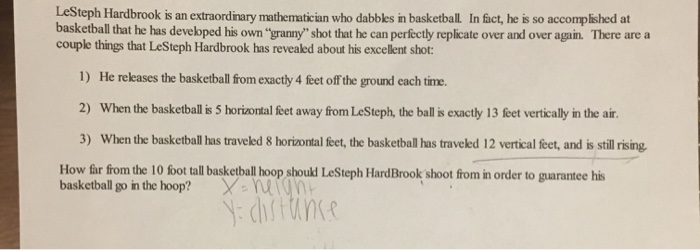 LeSteph Hardbrook is an extraordinary mathematician who dabbles in basketball. In fact, he is so accomplished at
basketball that he has developed his own "granny" shot that he can perfectly replicate over and over again. There are a
couple things that LeSteph Hardbrook has revealed about his excellent shot:
1) He releases the basketball from exactly 4 feet off the ground each time.
2) When the basketball is 5 horizontal feet away from LeSteph, the ball is exactly 13 feet vertically in the air.
3) When the basketball has traveled 8 horizontal feet, the basketball has traveled 12 vertical feet, and is still rising.
How far from the 10 foot tall basketball hoop should LeSteph HardBrook shoot from in order to guarantee his
basketball go in the hoop?
X=height
Y=distance